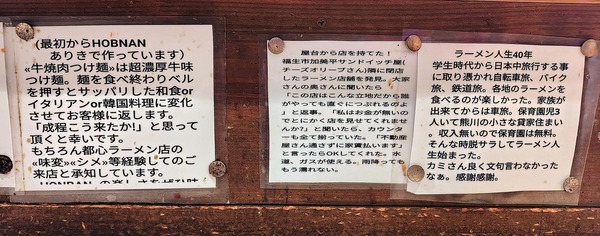 (最初からHOBNAN
ありきで作っています)
≪牛焼肉つけ麺≫は超濃厚牛味
つけ麺。麺を食べ終わりベル
を押すとサッパリした和食or
イタリアンor韓国料理に変化
させてお客様に返します。
「成程こう来たか!」と思って
頂くと幸いです。
もちろん都心ラーメン店の
≪味変≫≪シメ≫等経験してのご
来店と承知しています。
屋台から店を持てた!
福生市加美平サンドイッチ屋(
チーズオリーブさん)隣に閉店
したラーメン店舗を発見。大家
さんの奥さんに聞いたら
「この店はこんな立地だから誰
がやっても直ぐにつぶれるのよ
」と返事。「私はお金が無いの
でとにかく店を見せてくれませ
んか?」と聞いたら、カウンタ
ーも全て揃っていた。「不動産
屋さん通さずに家賃払います」
と言ったらOKしてくれた。水
道、ガスが使える。雨降っても
もう濡れない。
ラーメン人生40年
学生時代から日本中旅行する事
に取り憑かれ自転車旅、バイク
旅、鉄道旅。各地のラーメン
を食べるのが楽しかった。家族が
出来てからは車旅。保育園児3
人いて熊川の小さな貸家住まい
。収入無いので保育園は無料。
そんな時脱サラしてラーメン人
生始まった。
カミさん良く文句言わなかった
なぁ。感謝感謝。